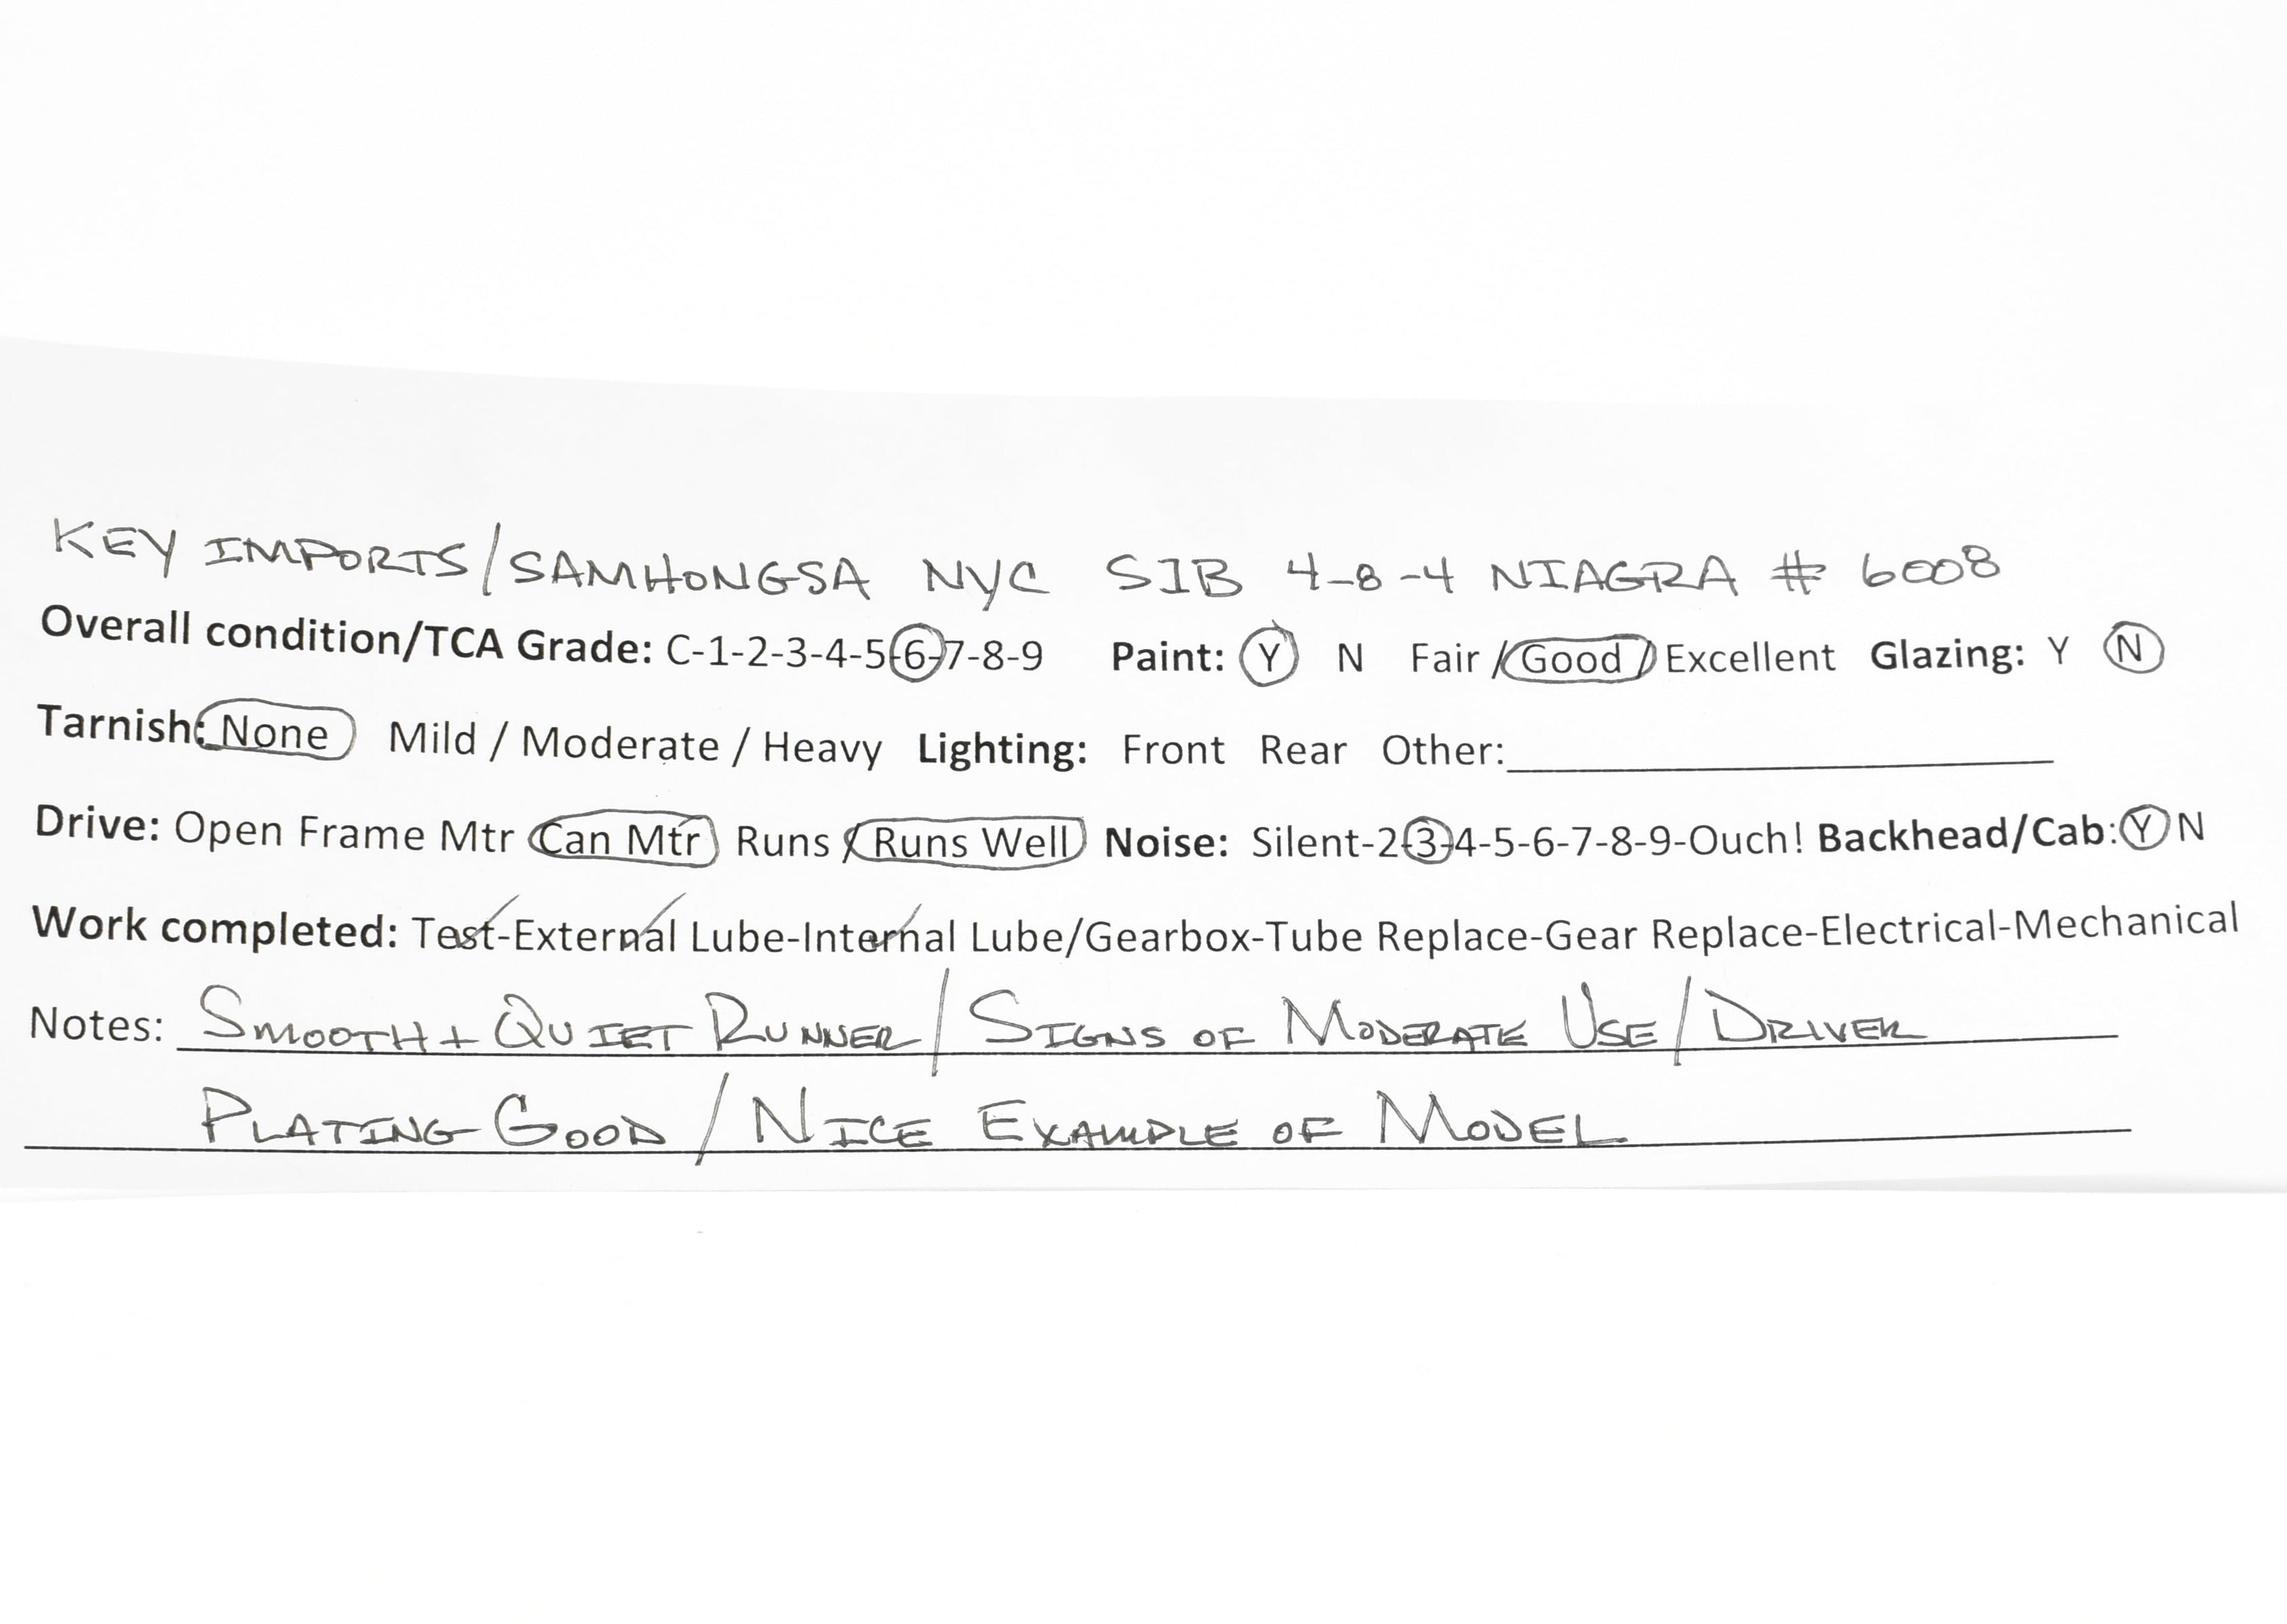 KEY IMPORTS/SAMHONGSA NYC S1B 4-8-4 NIAGRA # 6008
Overall condition/TCA Grade: C-1-2-3-4-5-6-7-8-9 Paint: Y N Fair / Good / Excellent Glazing: Y N
Tarnish: None Mild / Moderate / Heavy Lighting: Front Rear Other:
Drive: Open Frame Mtr Can Mtr Runs / Runs Well Noise: Silent-2-3-4-5-6-7-8-9-Ouch! Backhead/Cab: Y N
Work completed: Test-External Lube-Internal Lube/Gearbox-Tube Replace-Gear Replace-Electrical-Mechanical
Notes: SMOOTH + QUIET RUNNER / SIGNS OF MODERATE USE / DRIVER
PLATING GOOD / NICE EXAMPLE OF MODEL